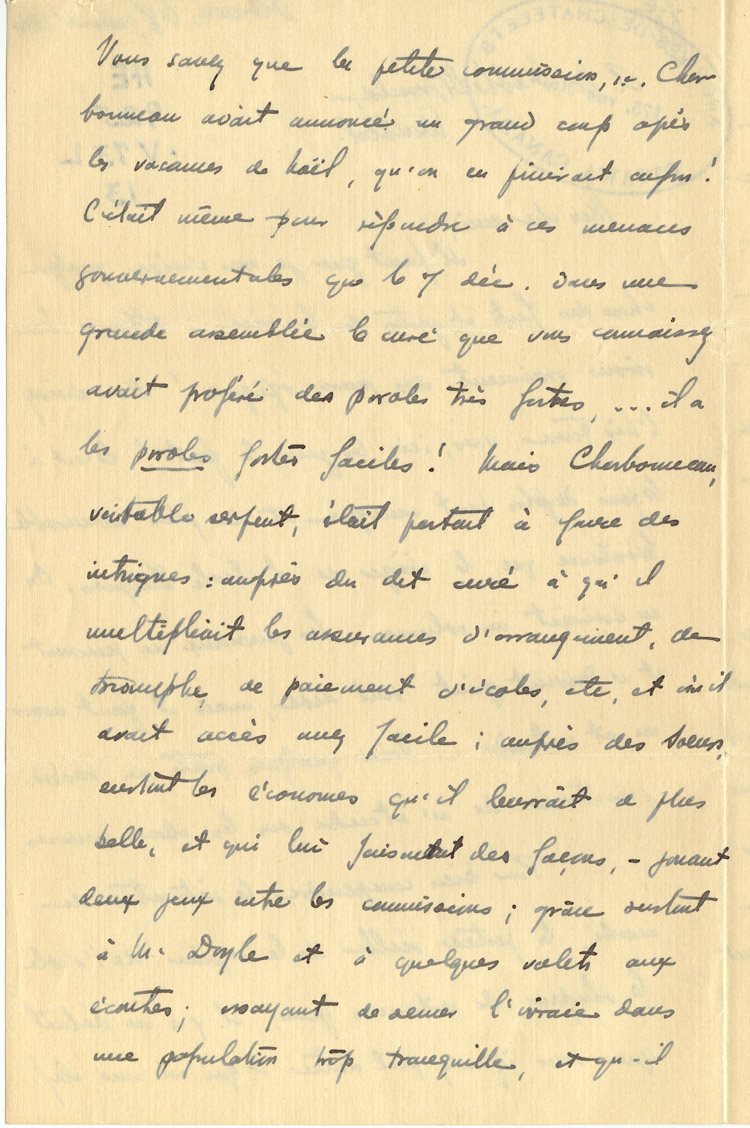 Vous savez que la petite commission, i.e. Cher
bonneau avait annoncé un grand coup après
les vacances de Noël, qu'on en finirait enfin!
C'était même pour répondre à ces menaces
gouvernementales que le 7 déc. dans une
grande assemblée le curé que vous connaissez
avait proféré des paroles très fortes, ... il a
les paroles fortes faciles! Mais Charbonneau,
véritable serpent, était partout à faire des
intrigues: auprès du dit curé à qui il
multipliait les assurances d'arrangement, de
triomphe, de paiement d'écoles, etc, et où il
avait accès assez facile; auprès des Soeurs,
surtout les économes qu'il leurrait de plus
belle, et qui lui faisaient des façons, - jouant
deux jeux entre les commissions; grâce surtout
à Mr Doyle et à quelques valets aux
écoutes; essayant de semer l'ivraie dans
une population trop tranquille, et qu-il